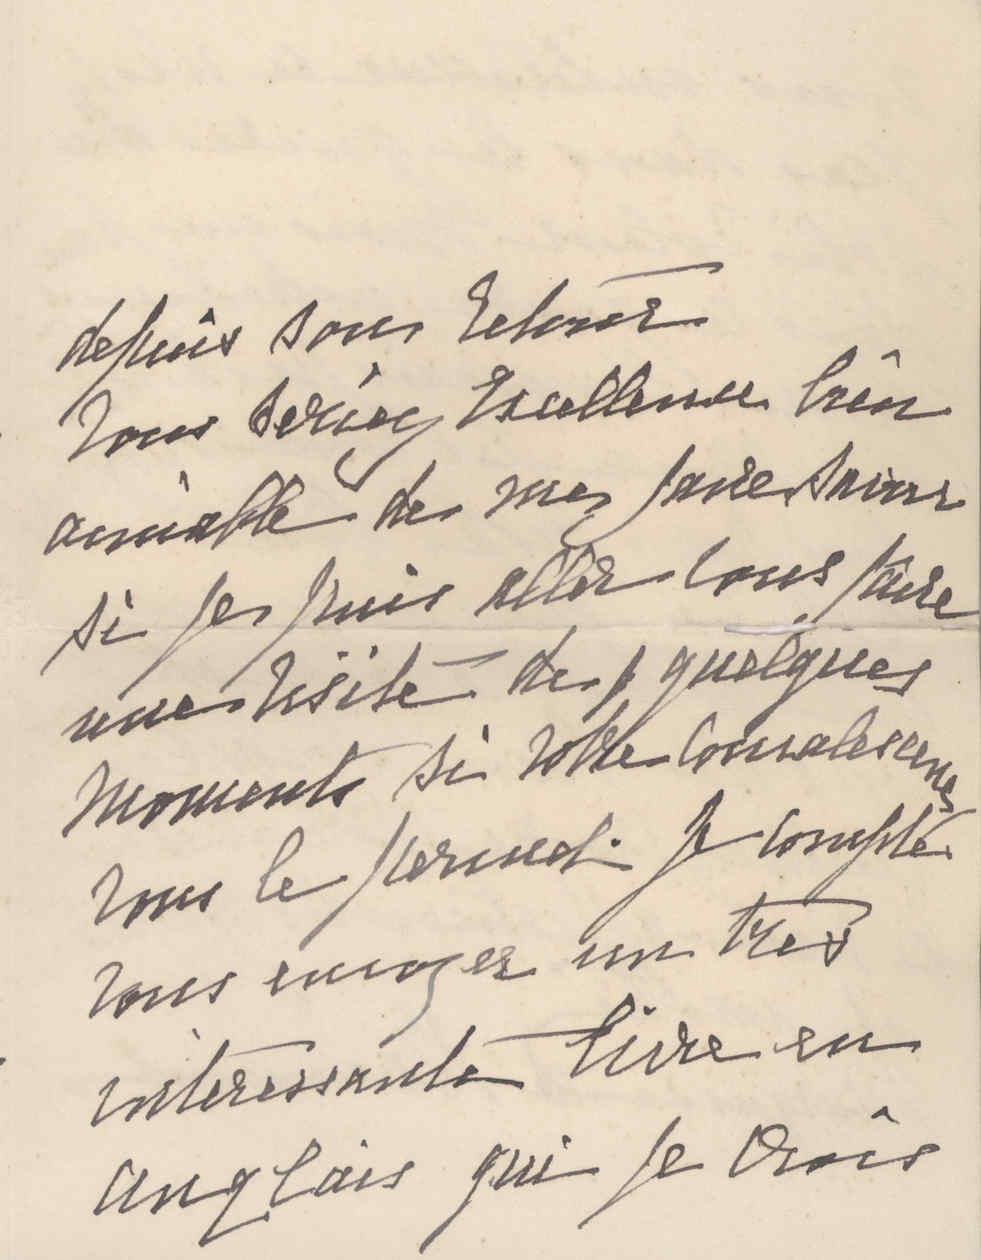 depuis son retour
Vous seriez Excellence bien
aimable de me faire savoir
si je puis aller vous faire
une visite de quelques
moments si votre convalescence
vous le permet. Je compte
vous envoyer un très
interessante livre en
anglais qui je crois